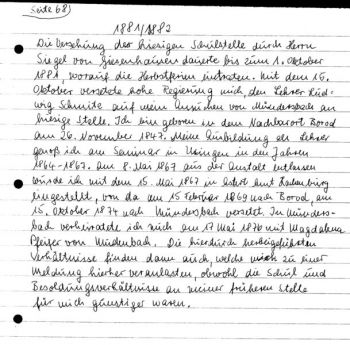 Seite 68)
1881/1882
Die Versehung der hiesigen Schulstelle durch Herrn
Siegel von Giesenhausen dauerte bis zum 1. Oktober
1881, worauf die Herbstferien eintraten. Mit dem 16.
Oktober versetzte hohe Regierung mich, den Lehrer Lud-
wig Schmitz auf mein Ansuchen von Mündersbach an
hiesige Stelle. Ich bin geboren in dem Nachbarort Borod
am 26. November 1847. Meine Ausbildung als Lehrer
genoß ich am Seminar in Usingen in den Jahren
1864-1867. Am 8. Mai 1867 aus der Anstalt entlassen
wurde ich mit dem 15. Mai 1867 in Astert Amt Hachenburg
eingestellt, von da am 15 Februar 1869 nach Borod, am
15. Oktober 1874 nach Mündersbach versetzt. In Münders-
bach verheiratete ich mich am 17 Mai 1876 mit Magdalena
Pfeifer von Mudenbach. Die hierdurch herbeigeführten
Verhältnisse finden dann auch, welche mich zu einer
Meldung hierher veranlassten, obwohl die Schul und
Besoldungsverhältnisse an meiner früheren Stelle
für mich günstiger waren.